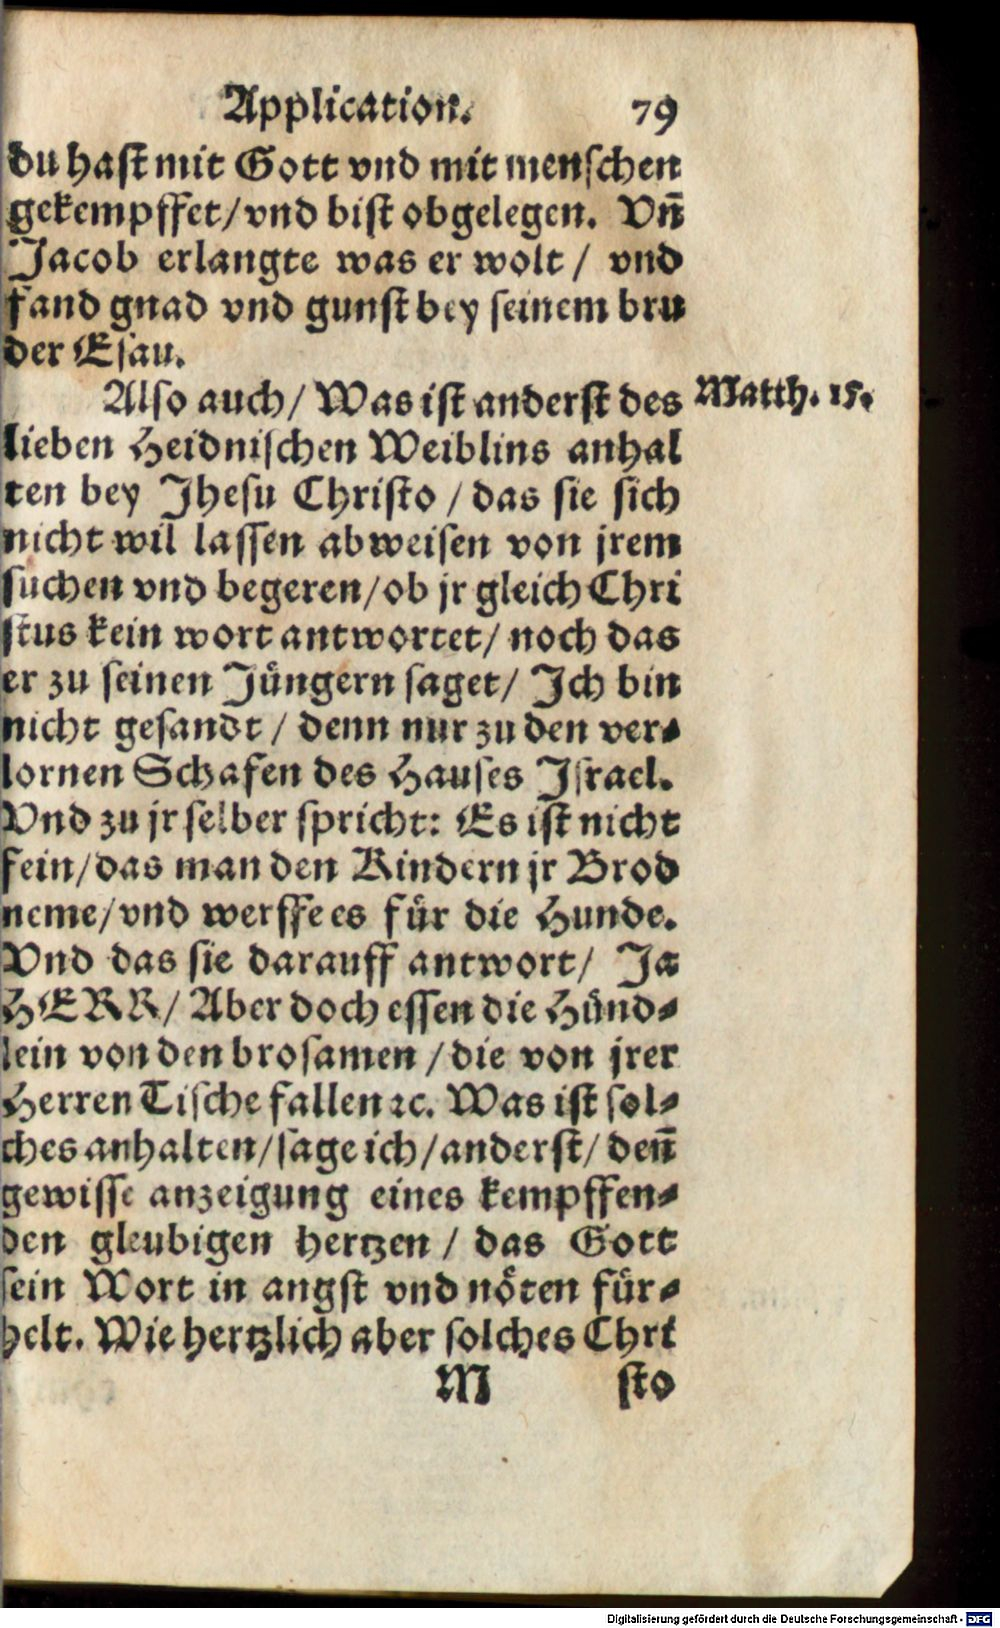 Application. 79
du hast mit Gott vnd mit menschen
gekempffet/vnd bist obgelegen. Vn̄
Jacob erlangte was er wolt / vnd
fand gnad vnd gunst bey seinem bru
der Esau.
Also auch/ Was ist anderst des Matth. 15.
lieben Heidnischen Weiblins anhal
ten bey Jhesu Christo / das sie sich
nicht wil lassen abweisen von jrem
suchen vnd begeren/ob jr gleich Chri
stus kein wort antwortet/ noch das
er zu seinen Jüngern saget/ Ich bin
nicht gesandt / denn nur zu den ver⸗
lornen Schafen des Hauses Israel.
Vnd zu jr selber spricht: Es ist nicht
fein/das man den Kindern jr Brod
neme/vnd werffe es für die Hunde.
Vnd das sie darauff antwort/ Ja
HERR/ Aber doch essen die Hünd⸗
lein von den brosamen /die von jrer
Herren Tische fallen ꝛc. Was ist sol⸗
ches anhalten/sage ich/anderst/ den̄
gewisse anzeigung eines kempffen⸗
den gleubigen hertzen / das Gott
sein Wort in angst vnd nöten für⸗
helt. Wie hertzlich aber solches Chri
M sto
Digitalisierung gefördert durch die Deutsche Forschungsgemeinschaft - DFG